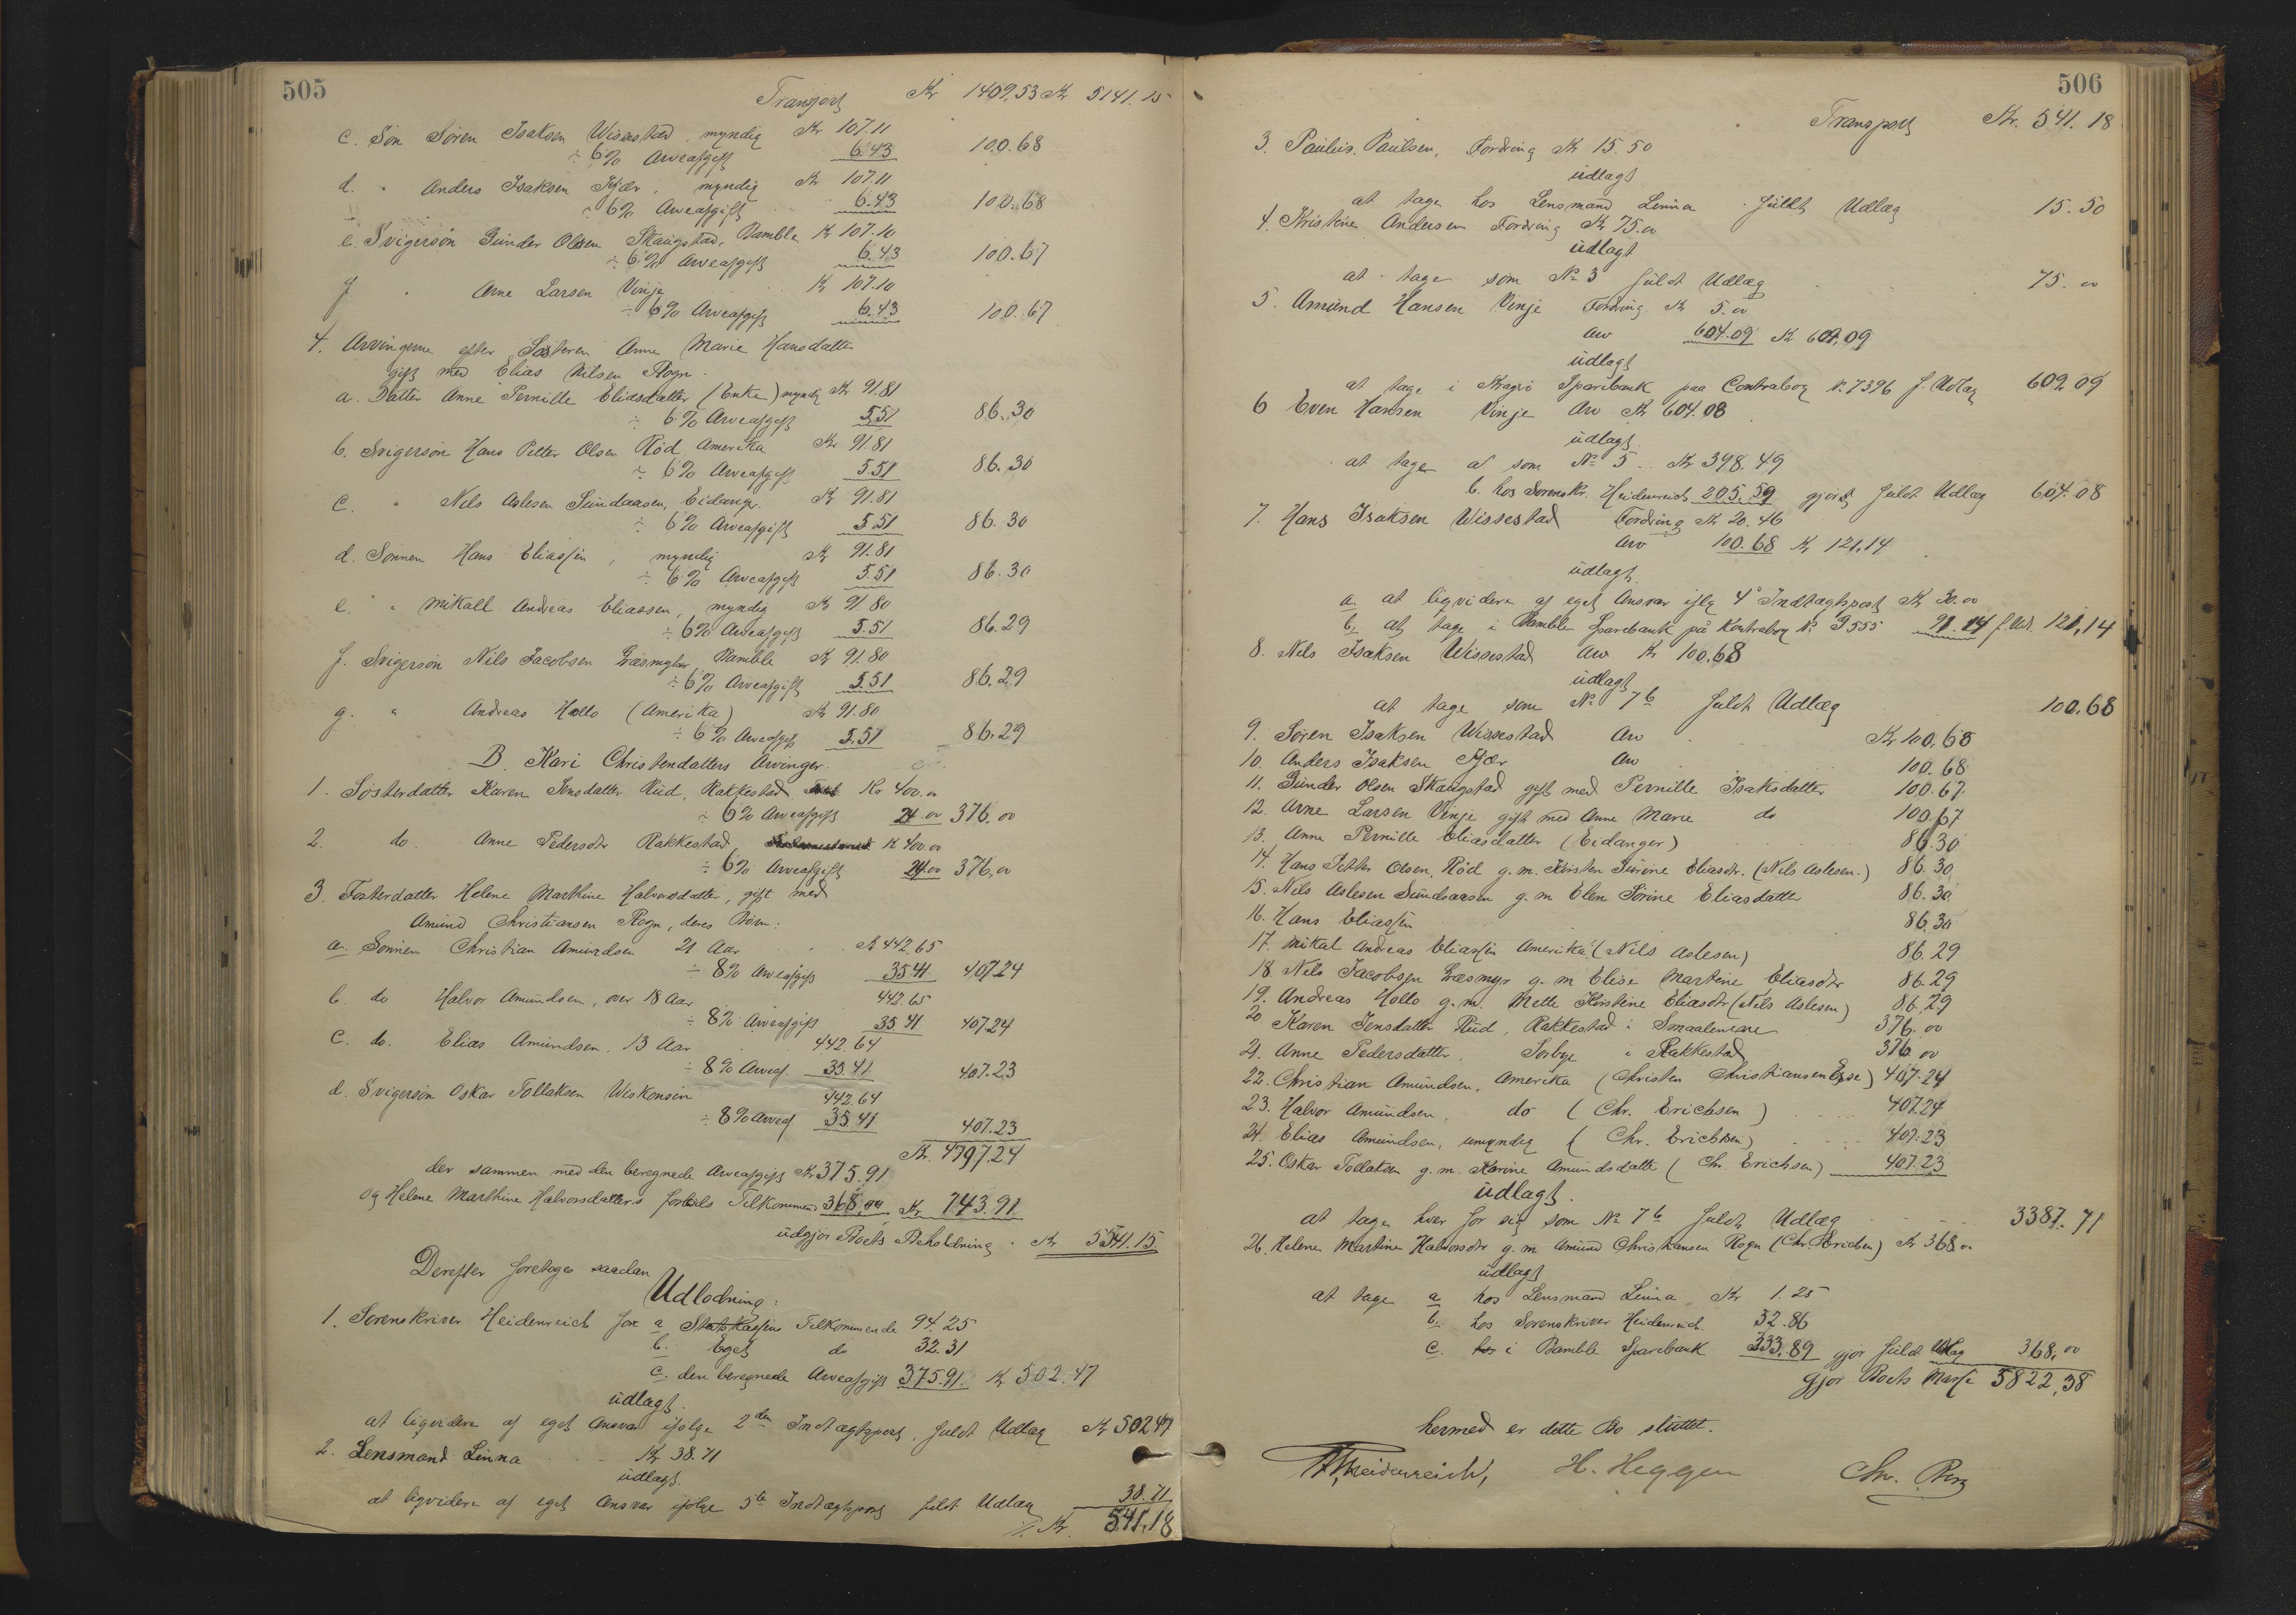 505
Transport Kr 1409,53 Kr 5141.15
c. Søn Søren Isaksen Wissestad, myndig Kr 107.11
÷ 6% Arveafgift 6.43 100.68
d. " Anders Isaksen Kjær, myndig Kr 107.11
÷ 6% Arveafgift 6.43 100.68
e. Svigersøn Gunder Olsen Skaugstad, Bamble Kr 107.10
÷ 6% Arveafgift 6.43 100.67
f. " Arne Larsen Vinje Kr 107.10
÷ 6% Arveafgift 6.43 100.67
4. Arvingerne efter Søsteren Anne Marie Hansdatter
gift med Elias Nilsen Rogn.
a. Datter Anne Pernille Eliasdatter (Enke) myndig Kr 91.81
÷ 6% Arveafgift 5.51 86.30
b. Svigersøn Hans Petter Olsen Rød Amerika Kr 91.81
÷ 6% Arveafgift 5.51 86.30
c. " Nils Aslesen Sundaasen, Eidanger. Kr 91.81
÷ 6% Arveafgift 5.51 86.30
d. Sønnen Hans Eliassen, myndig Kr 91.81
÷ 6% Arveafgift 5.51 86.30
e. " Mikall Andreas Eliassen, myndig Kr 91.80
÷ 6% Arveafgift 5.51 86.29
f. Svigersøn Nils Jacobsen Læsmyhr Bamble Kr 91.80
÷ 6% Arveafgift 5.51 86.29
g. " Andreas Holto (Amerika) Kr 91.80
÷ 6% Arveafgift 5.51 86.29
B. Kari Christendatters Arvinger.
1. Søsterdatter Karen Jensdatter Rud, Rakkestad Kr 400.00
÷ 6% Arveafgift 24.00 376.00
2. do. Anne Pedersdtr Rakkestad, Kr 400.00
÷ 6% Arveafgift 24.00 376,00
3. Fosterdatter Helene Marthine Halvorsdatter, gift med
Amund Christiansen Rogn, deres Børn:
a. Sønnen Christian Amundsen 21 Aar Kr 442.65
÷ 8% Arveafgift 35.41 407.24
b. do Halvor Amundsen, over 18 Aar 442.65
÷ 8% Arveafgift 35 41 407.24
c. do. Elias Amundsen, 13 Aar 442.64
÷ 8% Arveaf. 35.41 407.23
d. Svigersøn Oskar Tollaksen Wiskonsin 442.64
÷ 8% Arveaf 35.41 407.23
Kr. 4797.24
der sammen med den beregnede Arveafgift Kr 375.91
og Helene Marthine Halvorsdatters forlods Tilkommende 368,00 Kr 743.91
udgjør Boets Beholdning. Kr 5541.15
Derefter foretoges saadan
Udlodning:
1. Sorenskriver Heidenreich for a Statskassens Tilkommende 94.25
b. Eget do 32.31
c. den beregnede Arveafgift 375.91. Kr 502.47
udlagt.
at liqvidere af eget Ansvar ifølge 2den Indtægtspost, fuldt Udlæg Kr 502 47
2. Lensmand Linna Kr 38.71
udlagt.
at liqvidere af eget Ansvar ifølge 5te Indtægtspost fuldt Udlæg 38.71
Kr. 541,18
506
Transport Kr. 541.18
3. Paulus Paulsen, Fordring Kr 15.50
udlagt
at tage hos Lensmand Linna fuldt Udlæg 15.50
4. Kristine Andersen Fordring Kr 75.00
udlagt
at tage som No 3 fuldt Udlæg 75.00
5. Amund Hansen Vinje Fordring Kr 5.00
Arv 604.09 Kr 609,09
udlagt
at tage i Kragerø Sparebank paa Contrabog No 7396 f. Udlæg 609 09
6 Even Hansen Vinje Arv Kr 604.08
udlagt.
at tage a. som No 5 Kr 398.49
b. hos Sorenskr. Heidenreich 205.59 gjør fuldt Udlæg 604.08
7. Hans Isaksen Wissestad Fordring Kr 20.46
Arv 100.68 Kr 121.14
udlagt.
a. at liqvidere af eget Ansvar iflg 4de Indtægtspost Kr 30.00
b. at tage i Bamble Sparebank på Kontrabog No 9555 91.14 f. Udl. 121,14
8. Nels Isaksen Wissestad Arv Kr 100.68
udlagt
at tage som No 7b fuldt Udlæg 100.68
9. Søren Isaksen Wissestad Arv Kr 100.68
10. Anders Isaksen Kjær Arv 100.68
11. Gunder Olsen Skaugstad gift med Pernille Isaksdatter 100.67
12. Arne Larsen Vinje gift med Anne Marie do 100.67
13. Anne Pernille Eliasdatter (Eidanger) 86.30
14. Hans Petter Olsen, Rød g. m. Kirsten Sørine Eliasdtr. (Nils Aslesen.) 86.30
15. Nils Aslesen Sundsaasen g. m Elen Sørine Eliasdatter 86.30
16. Hans Eliassen 86.30
17. Mikal Andreas Eliassen Amerika (Nils Aslesen) 86.29
18. Nils Jacobsen Læsmyr g. m Elise Martine Eliasdtr 86.29
19. Andreas Holto g. m. Mette Kirstine Eliasdtr (Nils Aslesen) 86.29
20 Karen Jensdatter Rud, Rakkestad i Smaalenene 376.00
21. Anne Pedersdatter, Sørbye i Rakkestad 376.00
22. Christian Amundsen, Amerika (Christen Christiansen ) 407.24
23. Halvor Amundsen, do (Chr. Erichsen) 407.24
24. Elias Amundsen, umyndig (Chr. Erichsen) 407.23
25. Oskar Tollaksen g. m. Karine Amundsdatter (Chr. Erichsen) 407.23
udlagt.
at tage hver for sig som No 7b fuldt Udlæg 3387.71
26. Helene Martine Halvorsdtr g. m Amund Christiansen Rogn (Chr. Erichsen) Kr 368.00
udlagt
at tage a hos Lensmand Linna Kr 1.25
b. hos Sorenskriver Heidenreich 32.86
c. hos i Bamble Sparebank 333,89 gjør fuldt Udlæg 368,00
gjør Boets Masse 5822,38
hermed er dette Bo sluttet.
Heidenreich, H. Heggen Chr.